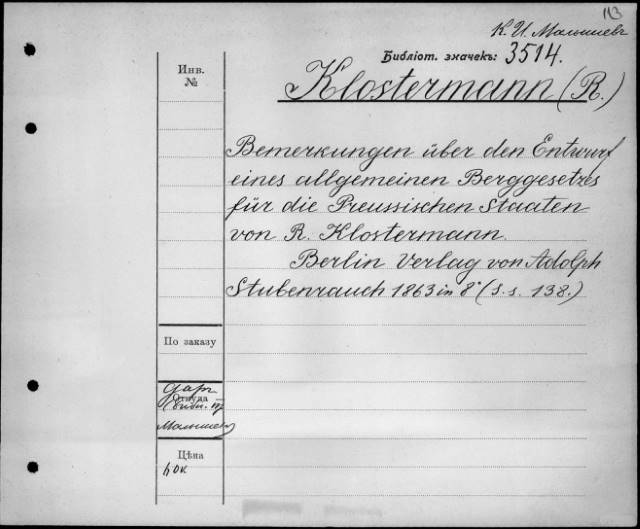 113
К. И. Малышевъ
Библіот. значекъ: 3514.
Инв.
№
Klostermann (R.)
Bemerkungen über den Entwurf
eines allgemeinen Berggesetzes
für die Preussischen Staaten
von R. Klostermann.
Berlin Verlag von Adolph
Stubenrauch 1863 in 8° (S.s. 138.)
По заказу
Откуда
Малышев
Цѣна
40к